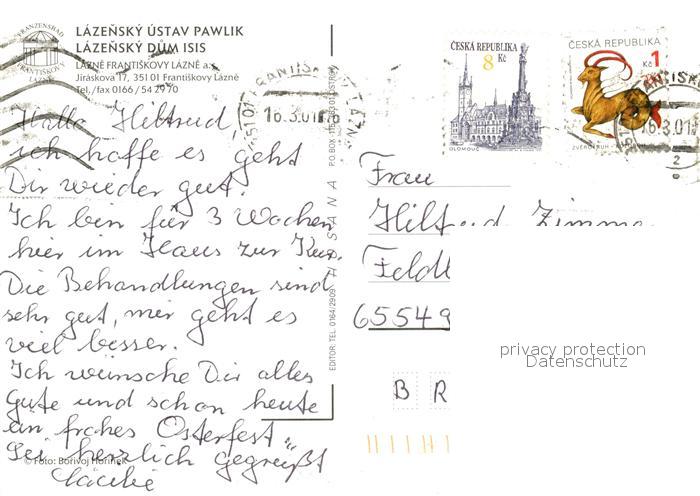 FRANZENSBAD
FRANTIŠKOVY
LÁZNĚ
LÁZEŇSKÝ ÚSTAV PAWLIK
LÁZEŇSKÝ DŮM ISIS
LÁZNĚ FRANTIŠKOVY LÁZNĚ a.s.
Jiráskova 17, 351 01 Františkovy Lázně
Tel./fax 0166 / 54 29 70
Hallo Hiltrud,
ich hoffe es geht
Dir wieder gut.
Ich bin für 3 Wochen
hier im Haus zur Kur.
Die Behandlungen sind
sehr gut, mir geht es
viel besser.
Ich wünsche Dir alles
Gute und schon heute
ein frohes Osterfest "
Sei herzlich gegrüßt
© Foto: Bořivoj Hořínek
EDITOR: TEL. 0164/2909
ČESKÁ REPUBLIKA
8 Kč
OLOMOUC
ČESKÁ REPUBLIKA
1 Kč
16.3.01
16.3.01
2
Frau
Hiltrud Zimme
Feldt
65549
B R
privacy protection
Datenschutz